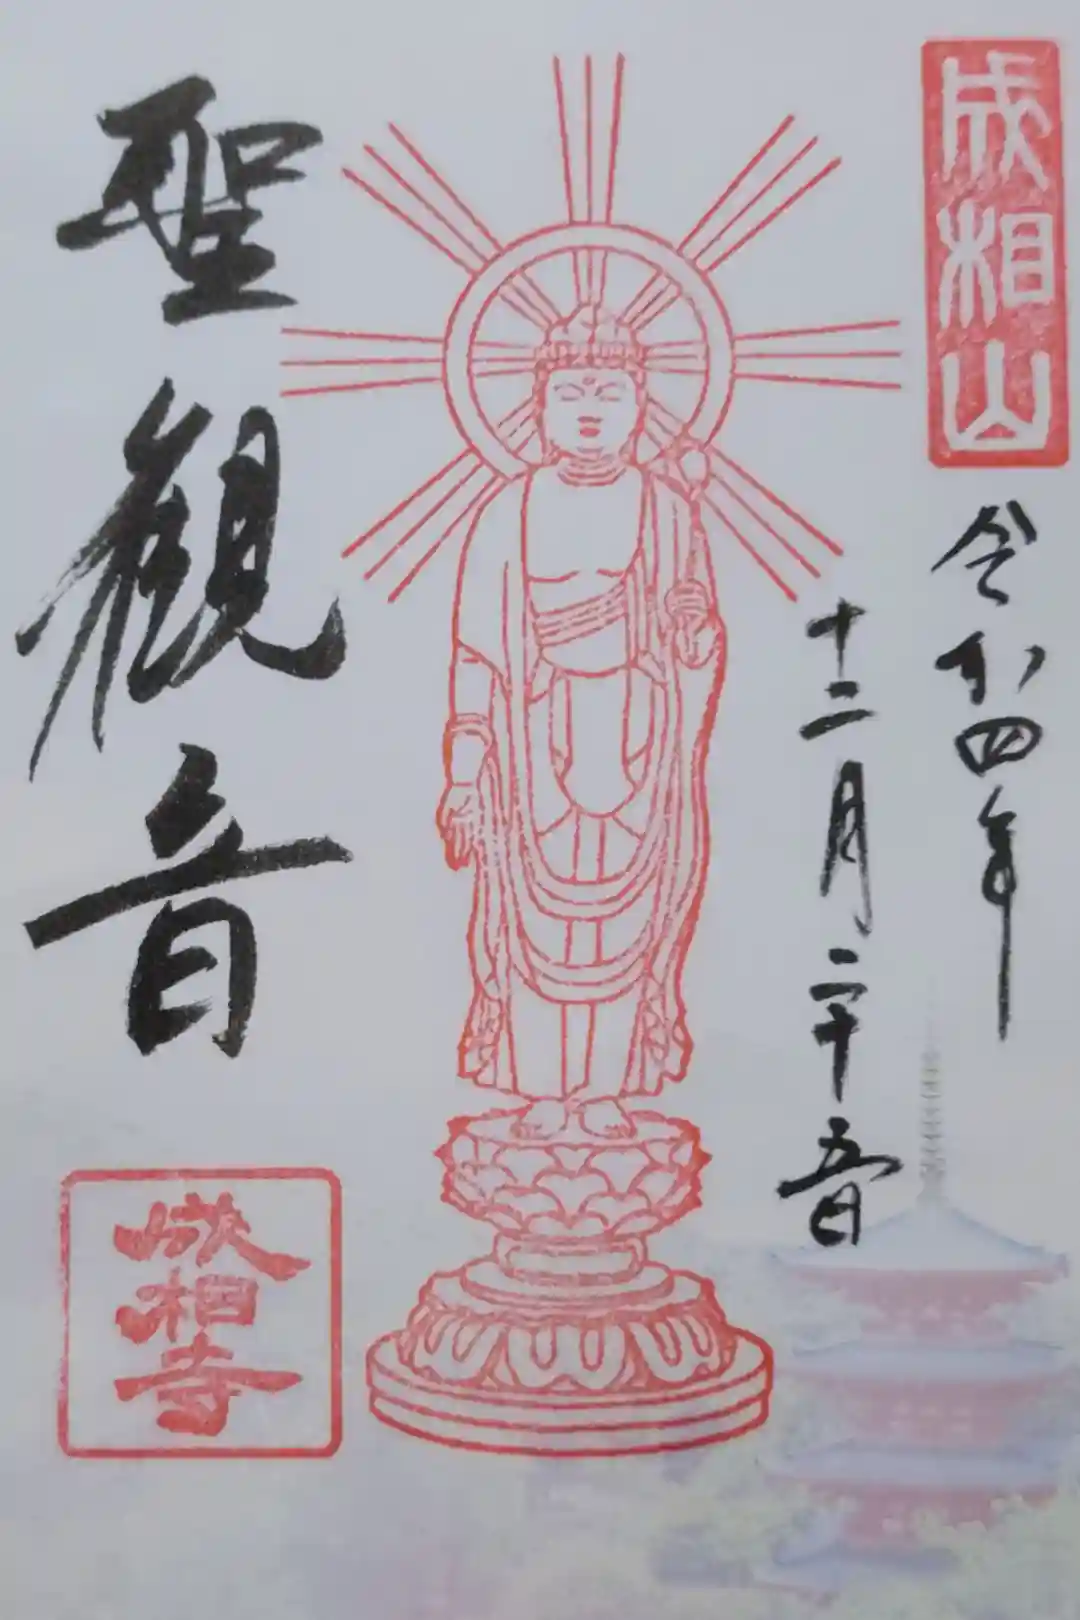 成相山
令和四年
十二月二十五日
聖観音
成相寺